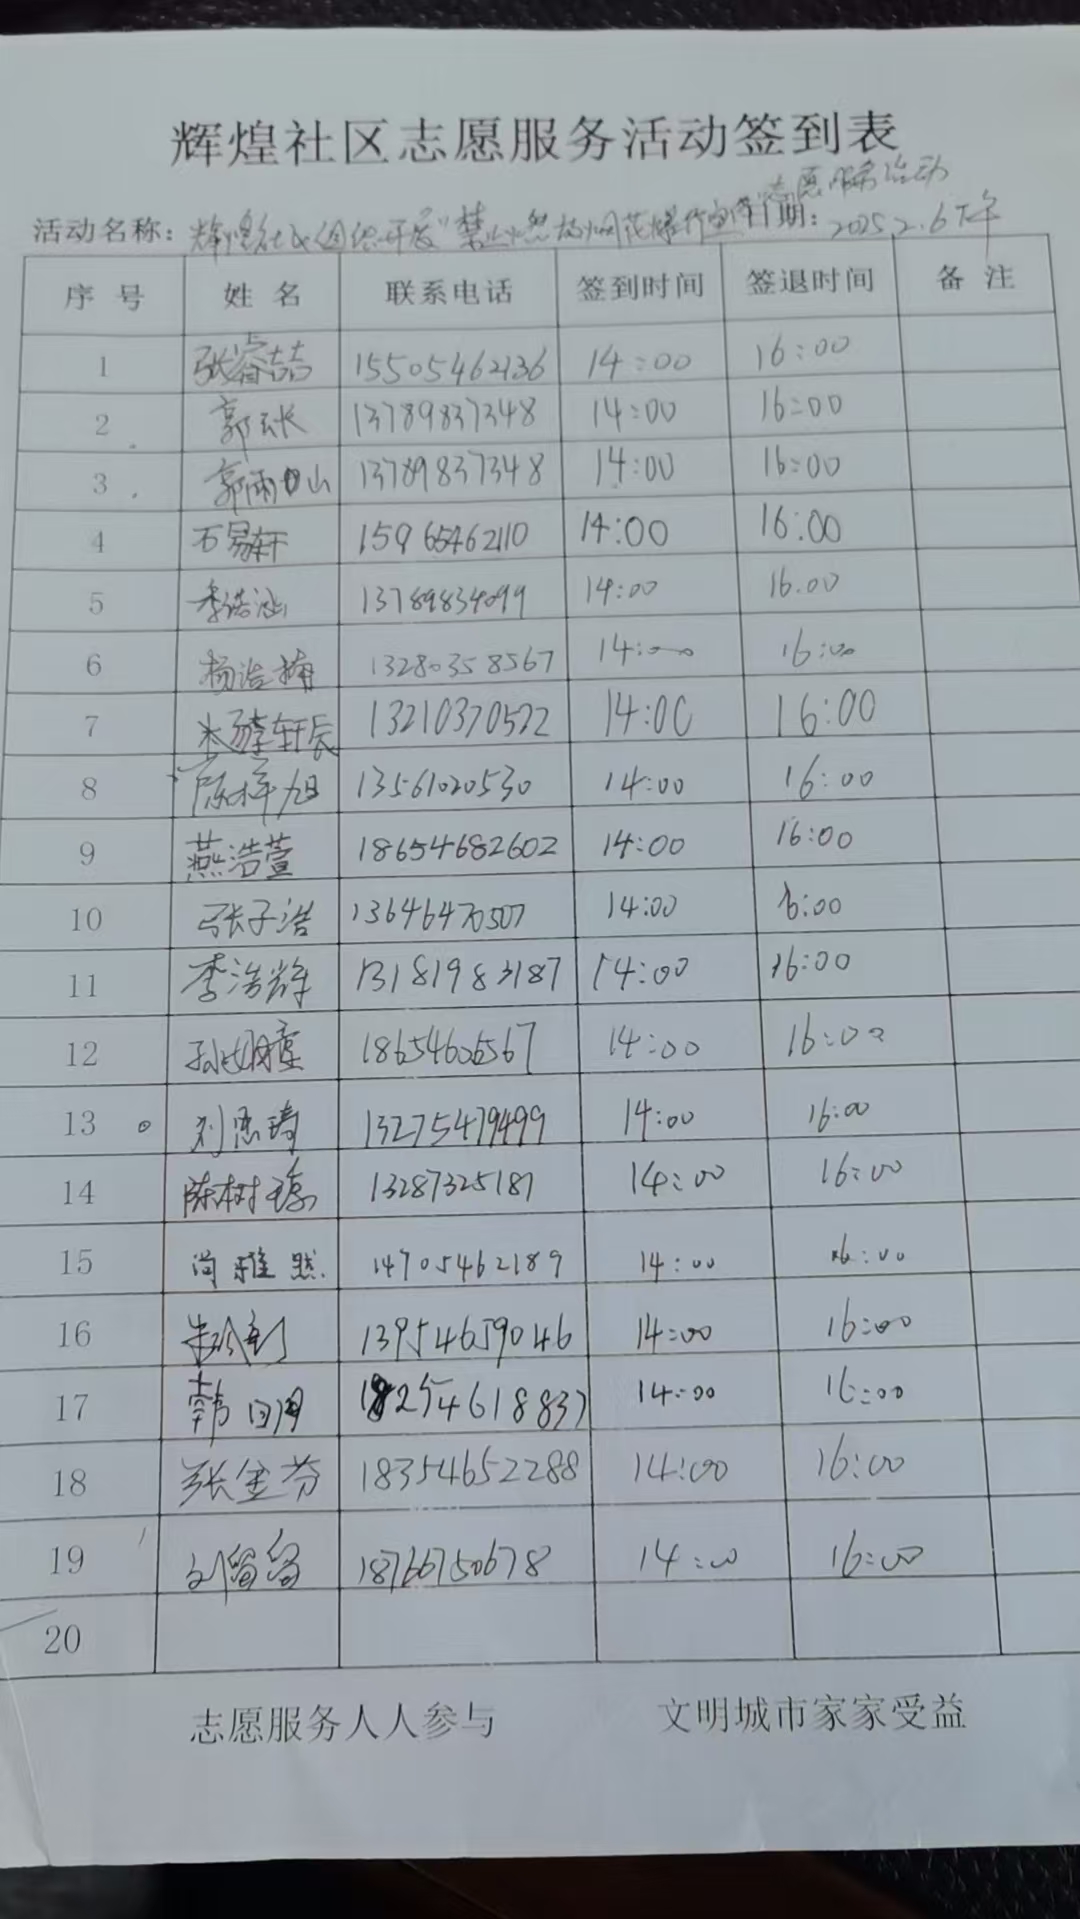 辉煌社区志愿服务活动签到表
志愿服务活动
活动名称：辉煌社区组织开展“禁止燃放烟花爆竹宣传” 日期：2025.2.6下午
序号 姓名 联系电话 签到时间 签退时间 备注
1 张睿喆 15505462136 14:00 16:00
2 郭 13789837348 14:00 16:00
3 郭雨 13789837348 14:00 16:00
4 石易轩 15965462110 14:00 16:00
5 李浩涵 13789834099 14:00 16.00
6 杨浩楠 13280358567 14:00 16:00
7 轩辰 13210370522 14:00 16:00
8 陈梓旭 13561020530 14:00 16:00
9 燕浩萱 18654682602 14:00 16:00
10 张子浩 13646470507 14:00 6:00
11 李浩辉 13181983187 14:00 16:00
12 孙 18654606567 14:00 16:00
13 刘思琦 13275479499 14:00 16:00
14 陈树 13287325187 14:00 16:00
15 尚雅然 14705462189 14:00 16:00
16 13954659046 14:00 16:00
17 韩 18254618837 14:00 16:00
18 张金芬 18354652288 14:00 16:00
19 刘留留 18766750678 14:00 16:00
20
志愿服务人人参与 文明城市家家受益